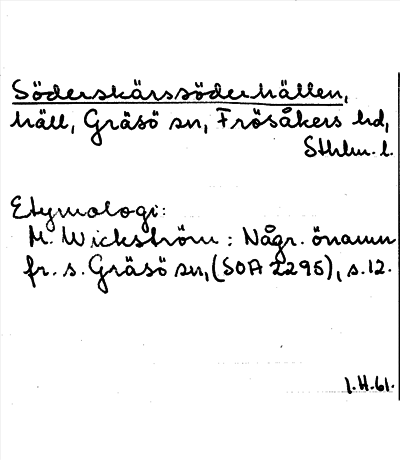 Söderskärssöderhällen,
häll, Gräsö sn, Frösåkers hd,
Sthlm. l.
Etymologi:
M. Wickström: Någr. önamn
fr. s. Gräsö sn, (SOA 2295), s. 12.
1.H.61.